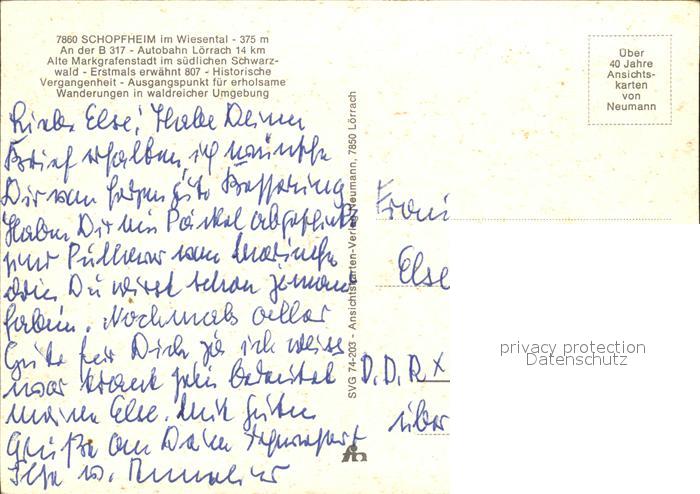 7860 SCHOPFHEIM im Wiesental - 375 m
An der B 317 - Autobahn Lörrach 14 km
Alte Markgrafenstadt im südlichen Schwarz-
wald - Erstmals erwähnt 807 - Historische
Vergangenheit - Ausgangspunkt für erholsame
Wanderungen in waldreicher Umgebung
Über
40 Jahre
Ansichts-
karten
von
Neumann
Liebe Else! Habe Deinen
Brief erhalten, ich wünsche
Dir von Herzen gute Besserung
Habe Dir ein Päckel abgeschickt
Du wirst schon jemand
haben. Nochmals alles
Gute für Dich ja ich weiss
was krank sein bedeutet
meine Else. Mit guten
Grüße an Dein
SVG 74-203 - Ansichtskarten-Verlag Neumann, 7850 Lörrach
Frau
Else
D.D.R X
über
privacy protection
Datenschutz